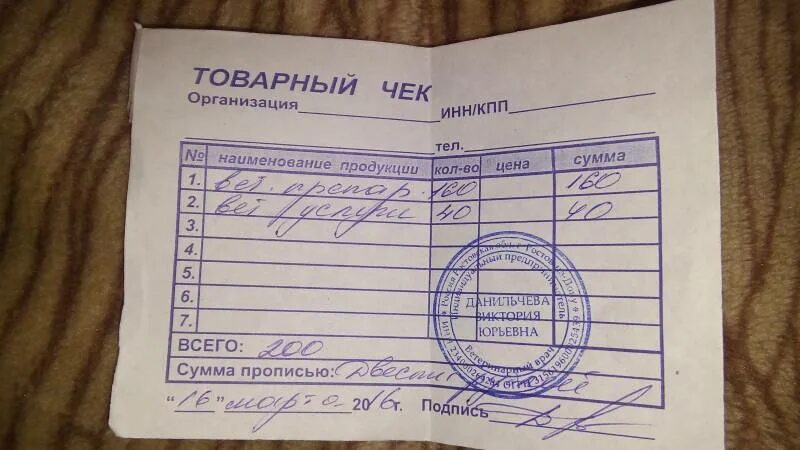 ТОВАРНЫЙ ЧЕК
Организация ИНН/КПП
тел.
№ наименование продукции кол-во цена сумма
1. вет. препар. 160 160
2. вет услуги 40 40
3.
4.
5.
6.
7.
ВСЕГО: 200
Сумма прописью: Двести рублей
"16" марта 2016г. Подпись
Россия Ростовская обл. г. Ростов-на-Дону
Индивидуальный предприниматель
ДАНИЛЬЧЕВА
ВИКТОРИЯ
ЮРЬЕВНА
Ветеринарный врач
ОГРН